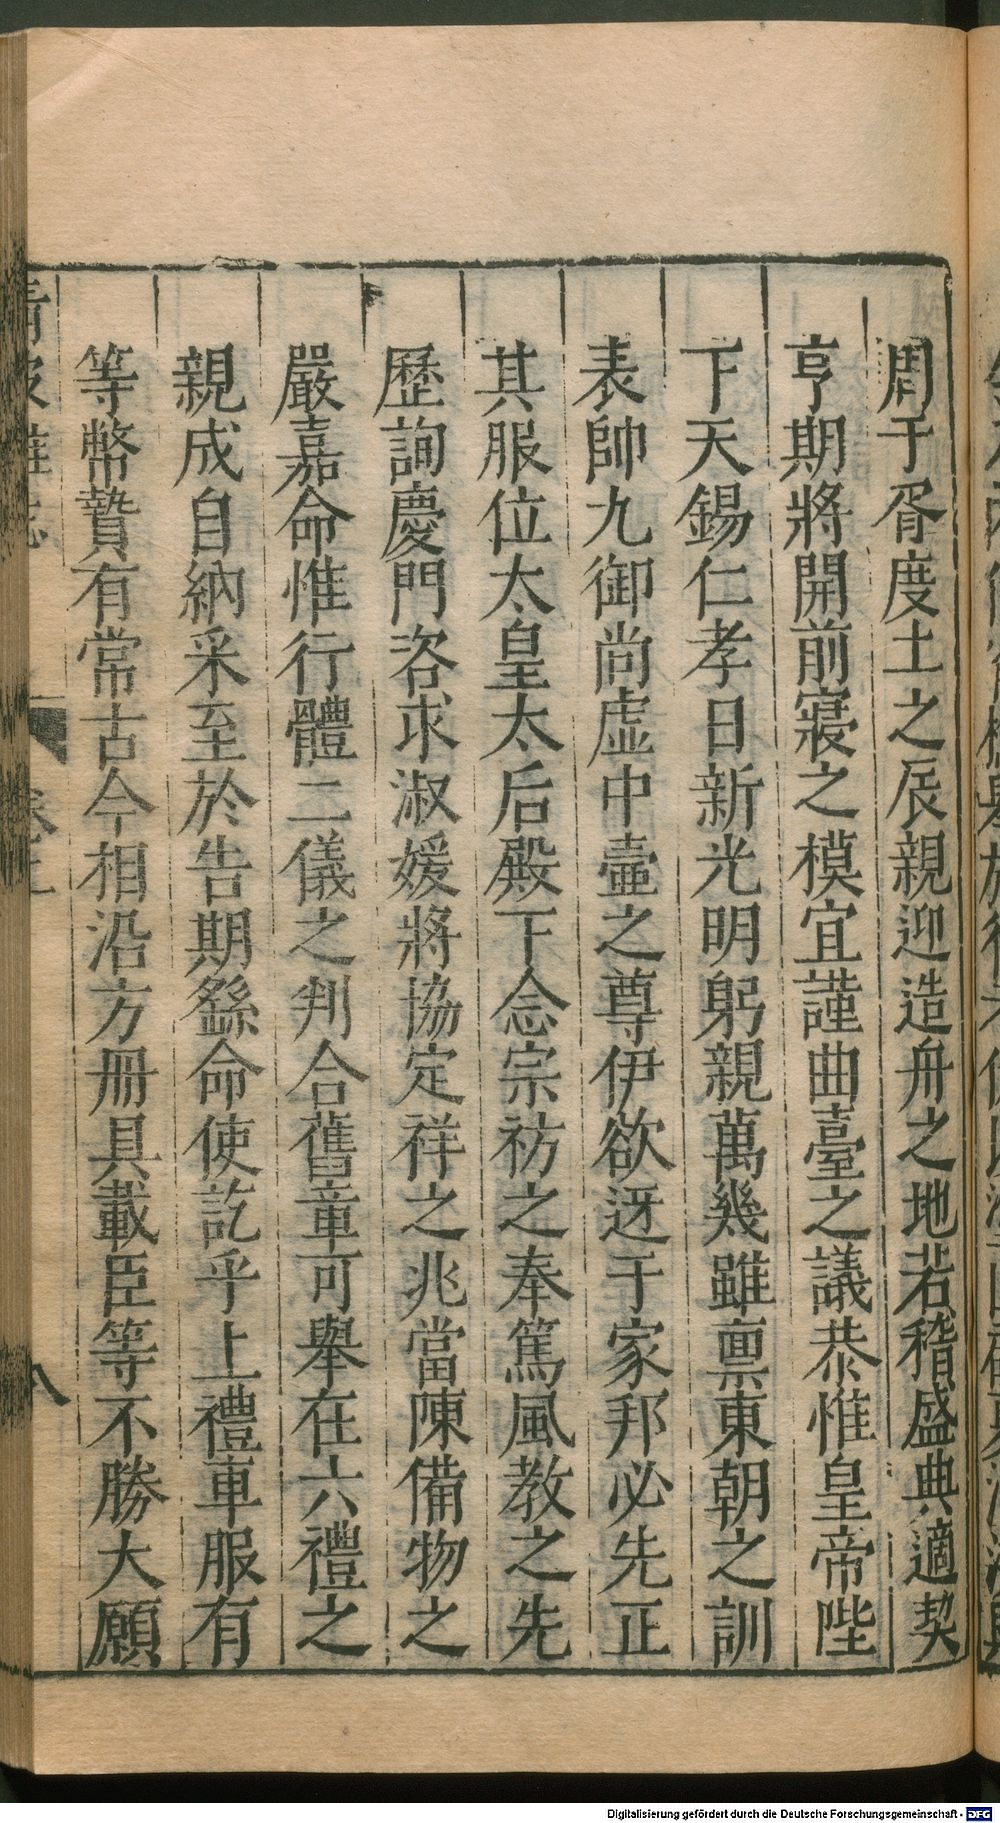 周于胥度土之辰親迎造舟之地若稽盛典適契
亨期將開前寢之模宜謹曲臺之議恭惟皇帝陛
下天錫仁孝日新光明躬親萬幾雖稟東朝之訓
表帥九御尚虛中壼之尊伊欲迓于家邦必先正
其服位太皇太后殿下念宗祊之奉篤風教之先
歷詢慶門咨求淑媛將協定祥之兆當陳備物之
嚴嘉命惟行體二儀之判合舊章可舉在六禮之
親成自納采至於告期繇命使訖乎上禮車服有
等幣贄有常古今相沿方冊具載臣等不勝大願
清波雜志 卷之一 八
Digitalisierung gefördert durch die Deutsche Forschungsgemeinschaft - DFG